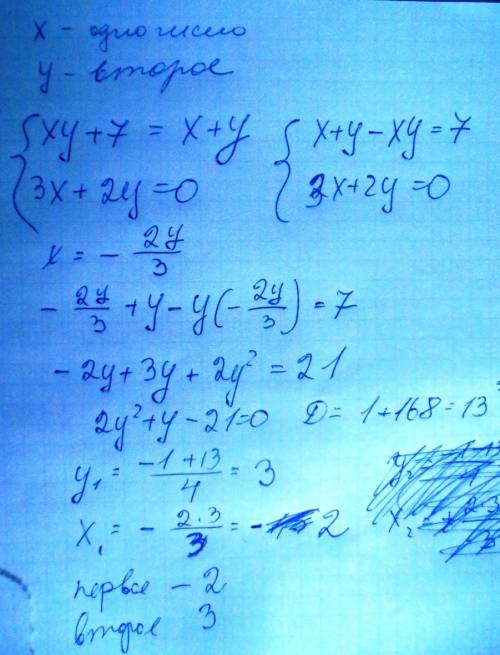 x - одно число
y - второе
{xy + 7 = x + y   {x + y - xy = 7
{3x + 2y = 0   {3x + 2y = 0
x = - 2y/3
- 2y/3 + y - y(- 2y/3) = 7
- 2y + 3y + 2y² = 21
2y² + y - 21 = 0   D = 1 + 168 = 13²
y₁ = (-1 + 13)/4 = 3
x₁ = - (2·3)/3 = - 2
первое - 2
второе 3